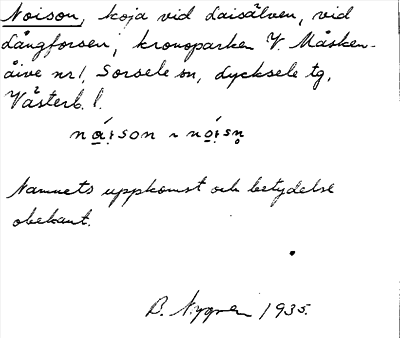 Noison, koja vid Laisälven, vid
Långforsen, kronoparken V. Måsken-
åive nr 1, Sorsele sn, Lycksele tg,
Västerb. l.
Namnets uppkomst och betydelse
obekant.
B. Nygren 1935.